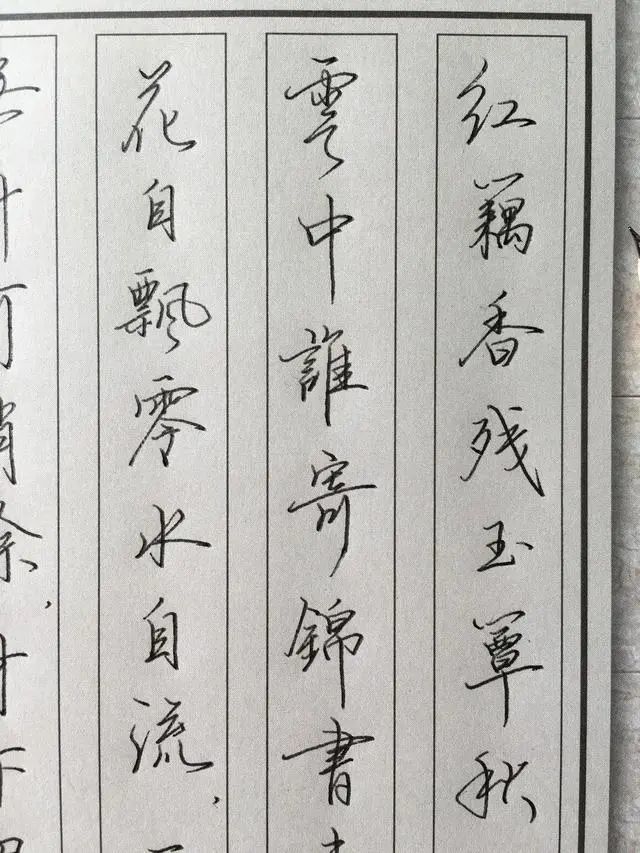 红藕香残玉簟秋
雲中誰寄錦書
花自飄零水自流，
計可消除，